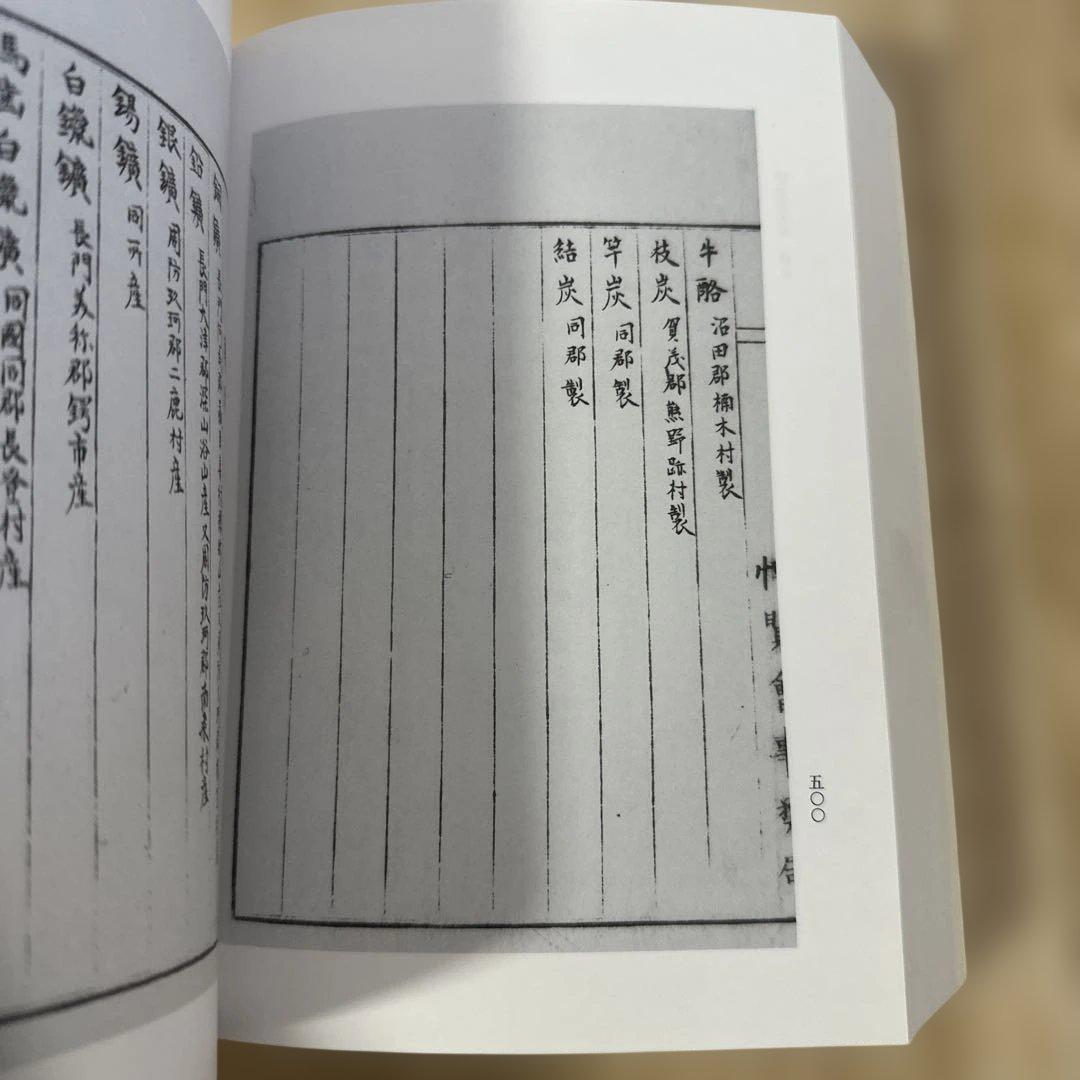 牛酪 沼田郡楠木村製
枝炭 賀茂郡熊野跡村製
竿炭 同郡製
結炭 同郡製
五〇〇
鉛鑛 長門大津郡深山浴山産又周防玖珂郡南桒村産
銀鑛 周防玖珂郡二鹿村産
錫鑛 同所産
白鑞鑛 長門美祢郡鍔市産
白鑞鑛 同國同郡長登村産